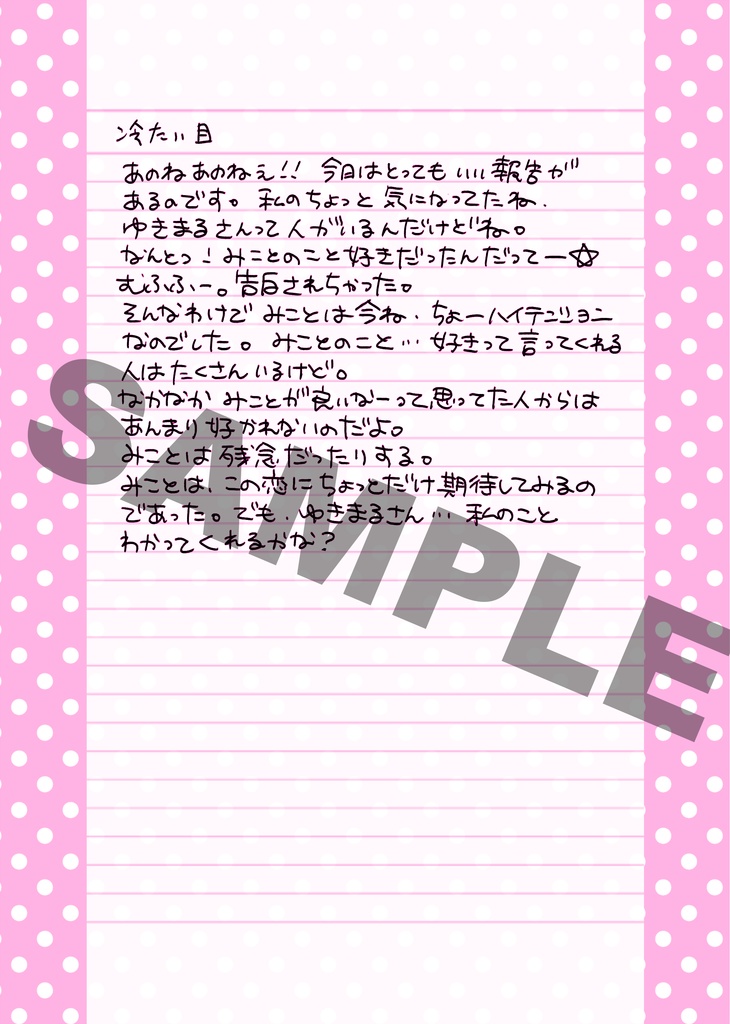 冷たい目
あのねあのねえ!! 今日はとってもいい報告が
あるのです。私のちょっと気になってたね、
ゆきまるさんって人がいるんだけどね。
なんとっ!みことのこと好きだったんだってー☆
むふふー。告白されちゃった。
そんなわけでみことは今ね、ちょーハイテンション
なのでした。みことのこと…好きって言ってくれる
人はたくさんいるけど。
なかなかみことが良いなーって思ってた人からは
あんまり好かれないのだよ。
みことは残念だったりする。
みことは、この恋にちょっとだけ期待してみるの
であった。でも、ゆきまるさん…私のこと
わかってくれるかな?
SAMPLE